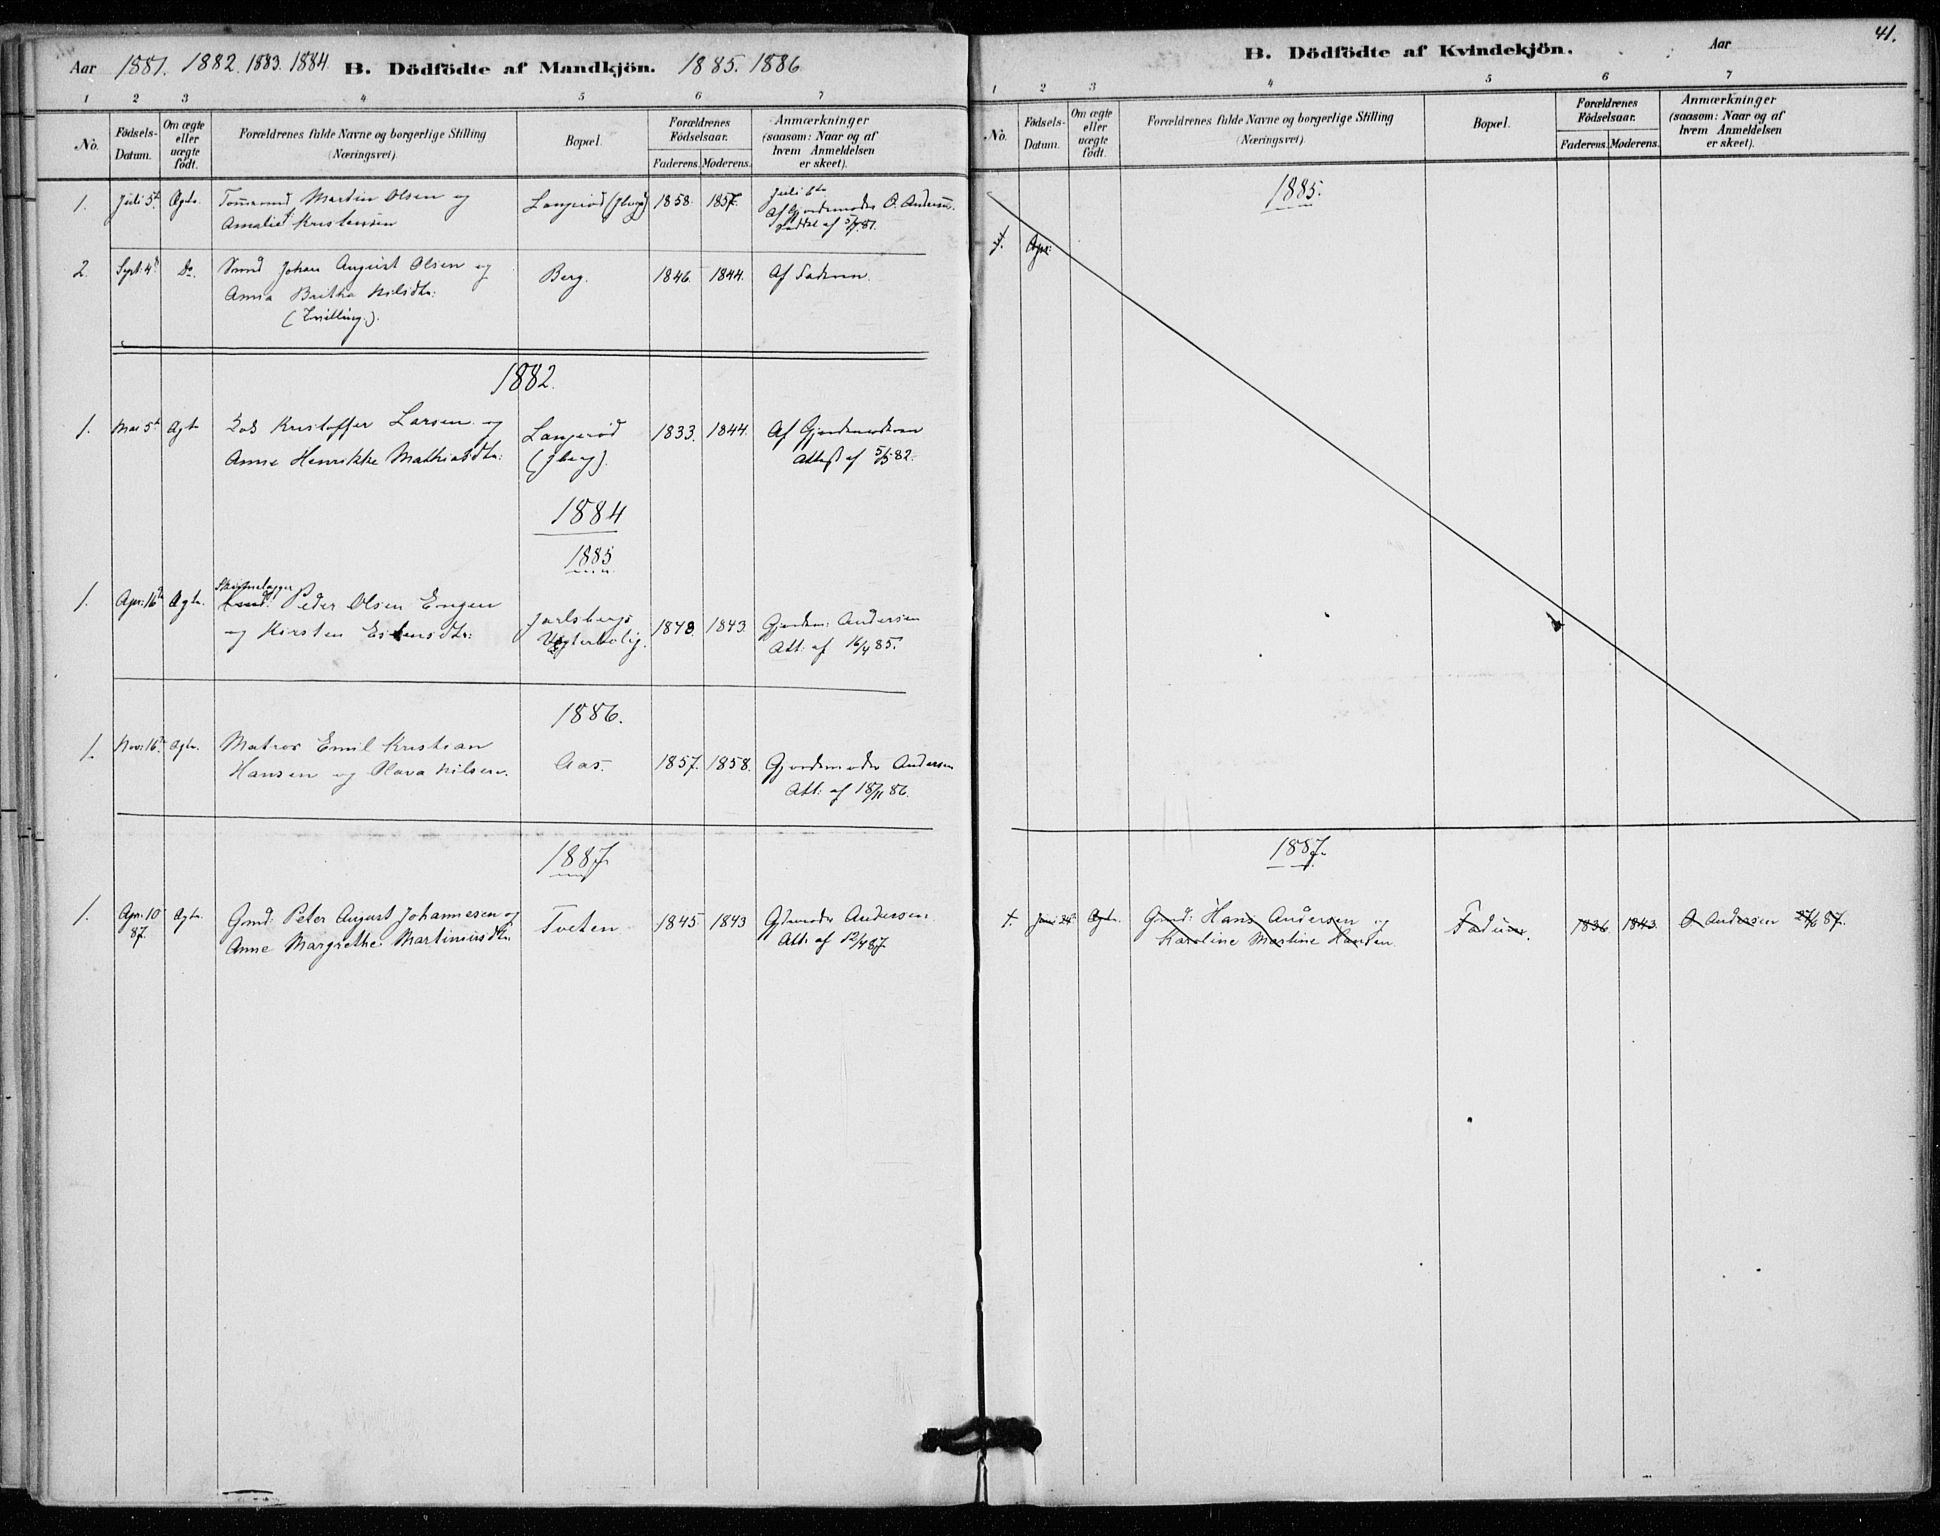 Aar 1881. 1882. 1883. 1884 B. Dödfödte af Mandkjön. 1885. 1886
1 2 3 4 5 6 7
No.
Födsels-
Datum.
Om ægte
eller
uægte
födt.
Forældrenes fulde Navne og borgerlige Stilling
(Næringsvei)
Bopæl.
Forældrenes
Födselsaar.
Faderens. Moderens.
Anmærkninger
(saasom: Naar og af
hvem Anmeldelsen
er skeet).
1. Juli 5te Ægte. Tømmermd Martin Olsen og Langerød (Jberg) 1858. 1857. Juli 6te
Amalie Kristensen Af Gjordemoder O. Andersen.
Seddel af 5/7 81.
2. Sept: 4de Do. Smed Johan August Olsen og Berg. 1846. 1844. Af Faderen.
Anna Britha Nilsdtr:
(Tvilling.).
1882.
1. Mai 5te Ægte Kristoffer Larsen og Langerød 1833. 1844 Af Gjordemoderen
Anne Henrikke Mathiasdtr: (Jberg). Attest af 5/5 82.
1884
1885
1. Apr: 16de Ægte. Peder Olsen Engen Jarlsbergs 1843 1843. Gjordem: Andersen
og Kirsten Estensdtr: Vogterbolig. Att: af 16/4 85.
1886.
1. Nov: 16de Ægte. Matros Emil Kristian Aas. 1857. 1858. Gjordemoder Andersen
Hansen og Olava Nilsen. Att: af 18/11 86.
1887.
1. Apr: 10 Ægte. Gmd: Peter August Johannesen og Tveten 1845 1843 Gjdmoder Andersen.
87. Anne Margrethe Martiniusdtr. Att: af 12/4 87.
41.
B. Dödfödte af Kvindekjön. Aar
1 2 3 4 5 6 7
No.
Födsels-
Datum.
Om ægte
eller
uægte
födt.
Forældrenes fulde Navne og borgerlige Stilling
(Næringsvei)
Bopæl.
Forældrenes
Födselsaar.
Faderens. Moderens.
Anmærkninger
(saasom: Naar og af
hvem Anmeldelsen
er skeet).
1885.
1. Apr:
1887.
1. Juni 24de Ægte. Gmd: Hans Andersen og Fadum. 1836. 1843. O Andersen 27/6 87.
Karoline Martine Hansen